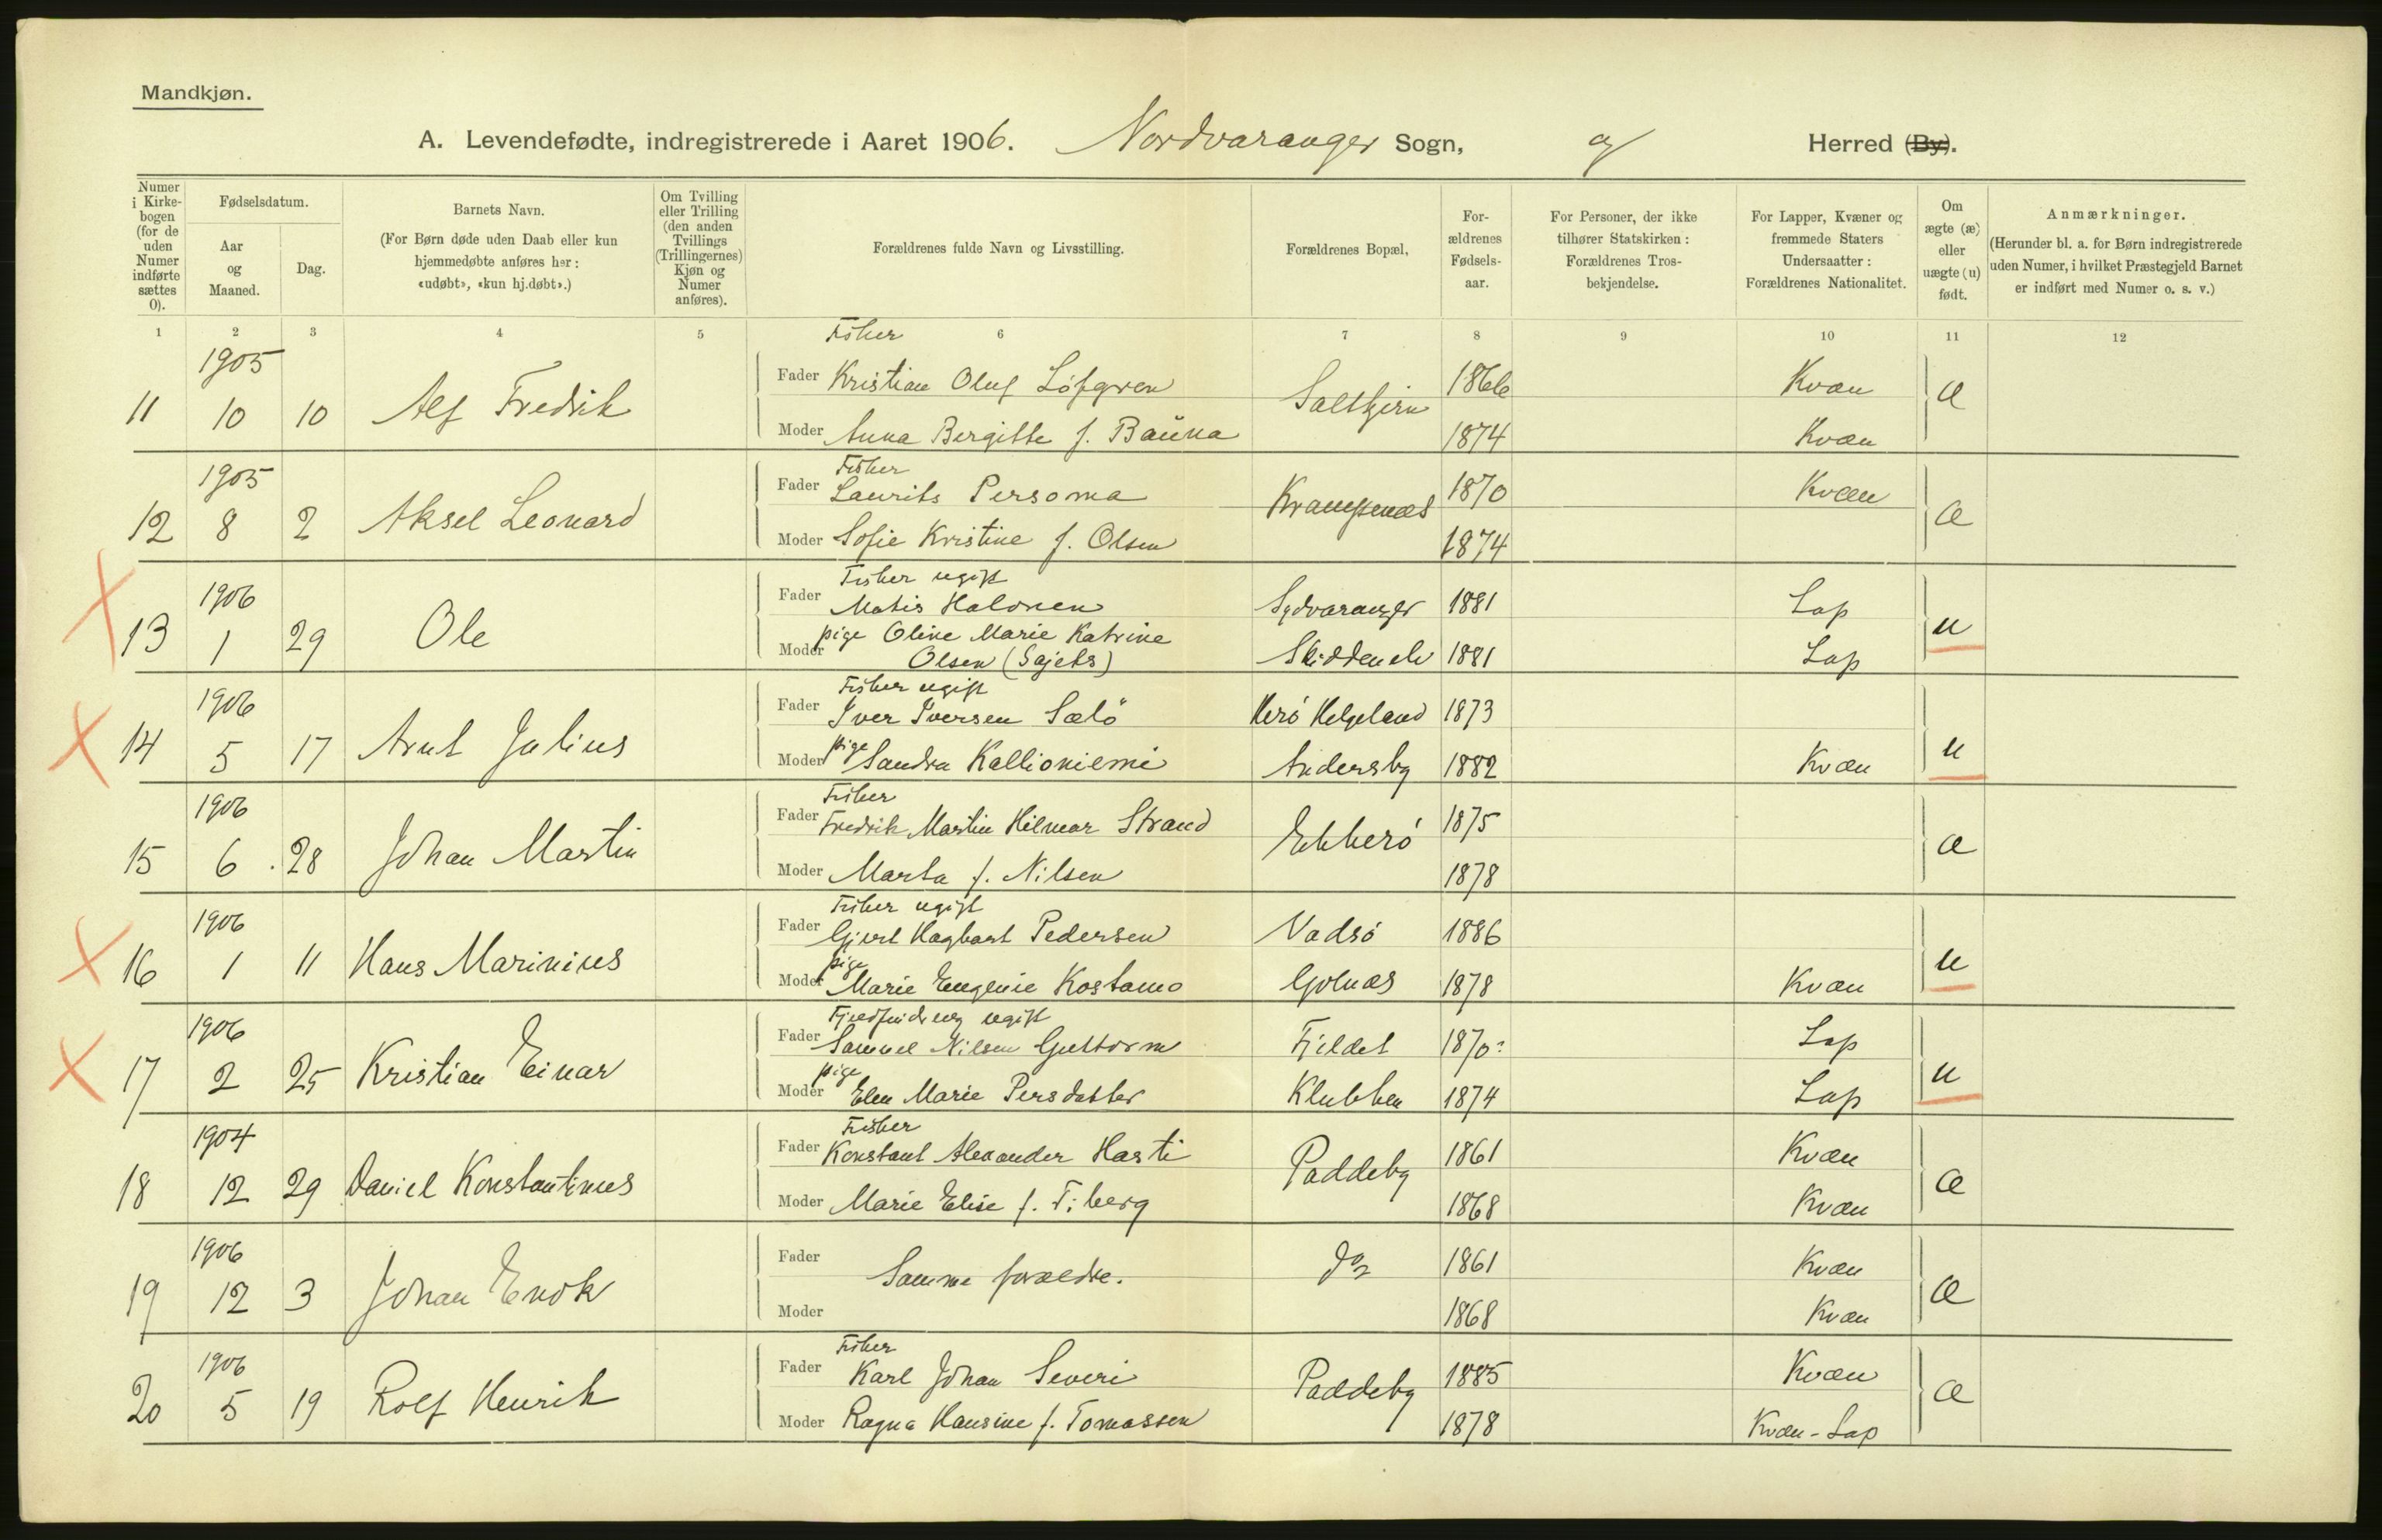 Mandkjøn.
A. Levendefødte, indregistrerede i Aaret 1906. Nordvaranger Sogn, og Herred (By).
Numer i Kirkebogen (for de uden Numer indførte sættes 0).
Fødselsdatum.
Aar og Maaned.
Dag.
Barnets Navn.
(For Børn døde uden Daab eller kun hjemmedøbte anføres her: «udøbt», «kun hj.døbt».)
Om Tvilling eller Trilling (den anden Tvillings (Trillingernes) Kjøn og Numer anføres).
Forældrenes fulde Navn og Livsstilling.
Forældrenes Bopæl,
Forældrenes Fødselsaar.
For Personer, der ikke tilhører Statskirken: Forældrenes Trosbekjendelse.
For Lapper, Kvæner og fremmede Staters Undersaatter: Forældrenes Nationalitet.
Om ægte (æ) eller uægte (u) født.
Anmærkninger.
(Herunder bl. a. for Børn indregistrerede uden Numer, i hvilket Præstegjeld Barnet er indført med Numer o. s. v.)
1 2 3 4 5 6 7 8 9 10 11 12
Fisker
1905 Fader Kristian Oluf Löfgren 1866 Kvæn
11 10 10 Alf Fredrik Saltkjern æ
Moder Anna Bergitte f. Bauna 1874 Kvæn
Fisker
1905 Fader Laurits Persoma 1870 Kvæn
12 8 2 Aksel Leonard Krampenæs æ
Moder Sofie Kristine f. Olsen 1874
Fisker ugift
1906 Fader Matis Halonen Sydvaranger 1881 Lap
13 1 29 Ole u
Moder pige Oline Marie Katrine
Olsen (Sajets) Skiddenelv 1881 Lap
Fisker ugift
1906 Fader Iver Iversen Sælö Herö Helgeland 1873
14 5 17 Arnt Julius u
Moder pige Sandra Kallioniemi Andersby 1882 Kvæn
Fisker
1906 Fader Fredrik Martin Hilmar Strand 1875
15 6 28 Johan Martin Ekkerö æ
Moder Marta f. Nilsen 1878
Fisker ugift
1906 Fader Gjert Hagbart Pedersen Vadsö 1886
16 1 11 Hans Marinius u
Moder pige Marie Eugenie Kostamo Golnæs 1878 Kvæn
ugift
1906 Fader Samuel Nilsen Guttorm Fjeldet 1870? Lap
17 2 25 Kristian Einar u
Moder pige Elen Marie Persdatter Klubben 1874 Lap
Fisker
1904 Fader Konstant Alexander Harti 1861 Kvæn
18 12 29 Daniel Konstantinus Paddeby æ
Moder Marie Elise f. Friberg 1868 Kvæn
1906 Fader 1861 Kvæn
19 12 3 Johan Enok Samme forældre. do æ
Moder 1868 Kvæn
Fisker
1906 Fader Karl Johan Severi 1885 Kvæn
20 5 19 Rolf Henrik Paddeby æ
Moder Ragna Hansine f. Tomassen 1878 Kvæn-Lap